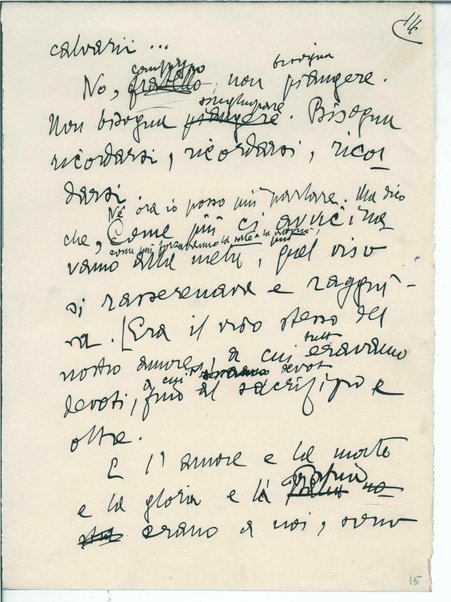 14
calvarii ...
compagno bisogna
No, fratello non piangere.
singhiozzare
Non bisogna piangere. Bisogna
ricordarsi, ricordarsi, ricor
darsi
Nè ora io posso più parlare. Ma dico
che, Come più ci avvicina
vamo alla meta, quel viso
si rasserenava e raggiu-
va. [Era il viso stesso del
nostro amore, a cui tutti eravamo
a cui devoti
devoti, fino al sacrifizio e
oltre.
E l'amore e la morte
e la gloria e la Patria
erano a noi, sono
15